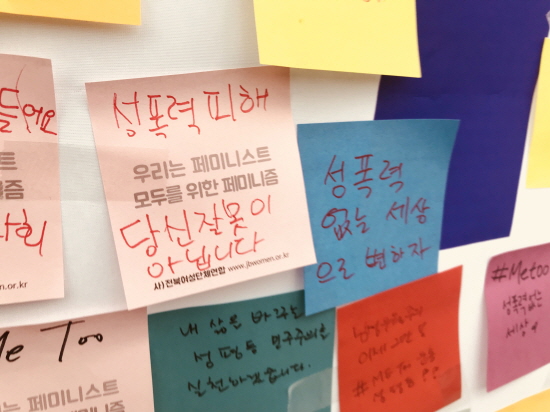 들어요
사회
men.or.kr
성폭력 피해
우리는 페미니스트
모두를 위한 페미니즘
당신 잘못이
아닙니다
사) 전북여성단체연합 www.jbwomen.or.kr
성폭력
없는 세상
으로 변하자
Me Too
내 삶을 바꾸는
성평등 민주주의
실천하겠습니다.
#Me Too
#Metoo
성폭력없는
세상